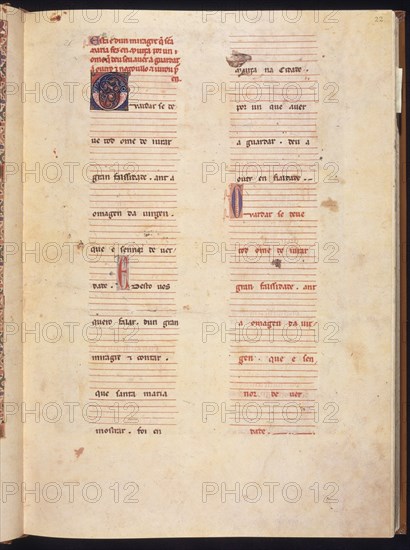 22
Esta é dun miragre q̄ scā
maria fez en
om̄e q̄ deu seu auer a guardar
en.
Guardar se de
ue tod ome de iurar
gran falssidade. ant a
omagen da uirgen.
que e sennor de ver
dade. E desto uos
quero falar. dun gran
miragre ⁊ contar.
que santa maria
mostrar. foi en
muita na cidade.
por un que auer
a guardar. deu a
outr en fialdade.
Guardar se deue
tod ome de iurar
gran falssidade. ant
a omagen da uir
gen. que e sen
nor de uer
dade.
PHOTO 12